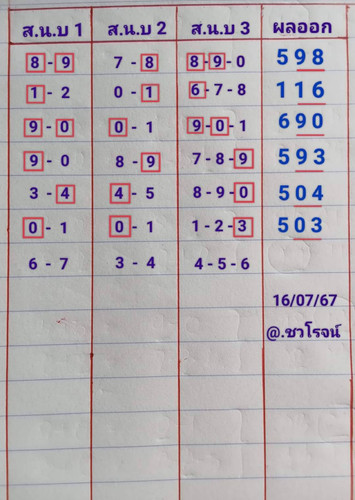 ส.น.บ 1 ส.น.บ 2 ส.น.บ 3 ผลออก
8 - 9 7 - 8 8 - 9 - 0 598
1 - 2 0 - 1 6 - 7 - 8 116
9 - 0 0 - 1 9 - 0 - 1 690
9 - 0 8 - 9 7 - 8 - 9 593
3 - 4 4 - 5 8 - 9 - 0 504
0 - 1 0 - 1 1 - 2 - 3 503
6 - 7 3 - 4 4 - 5 - 6
16/07/67
@.ชวโรจน์